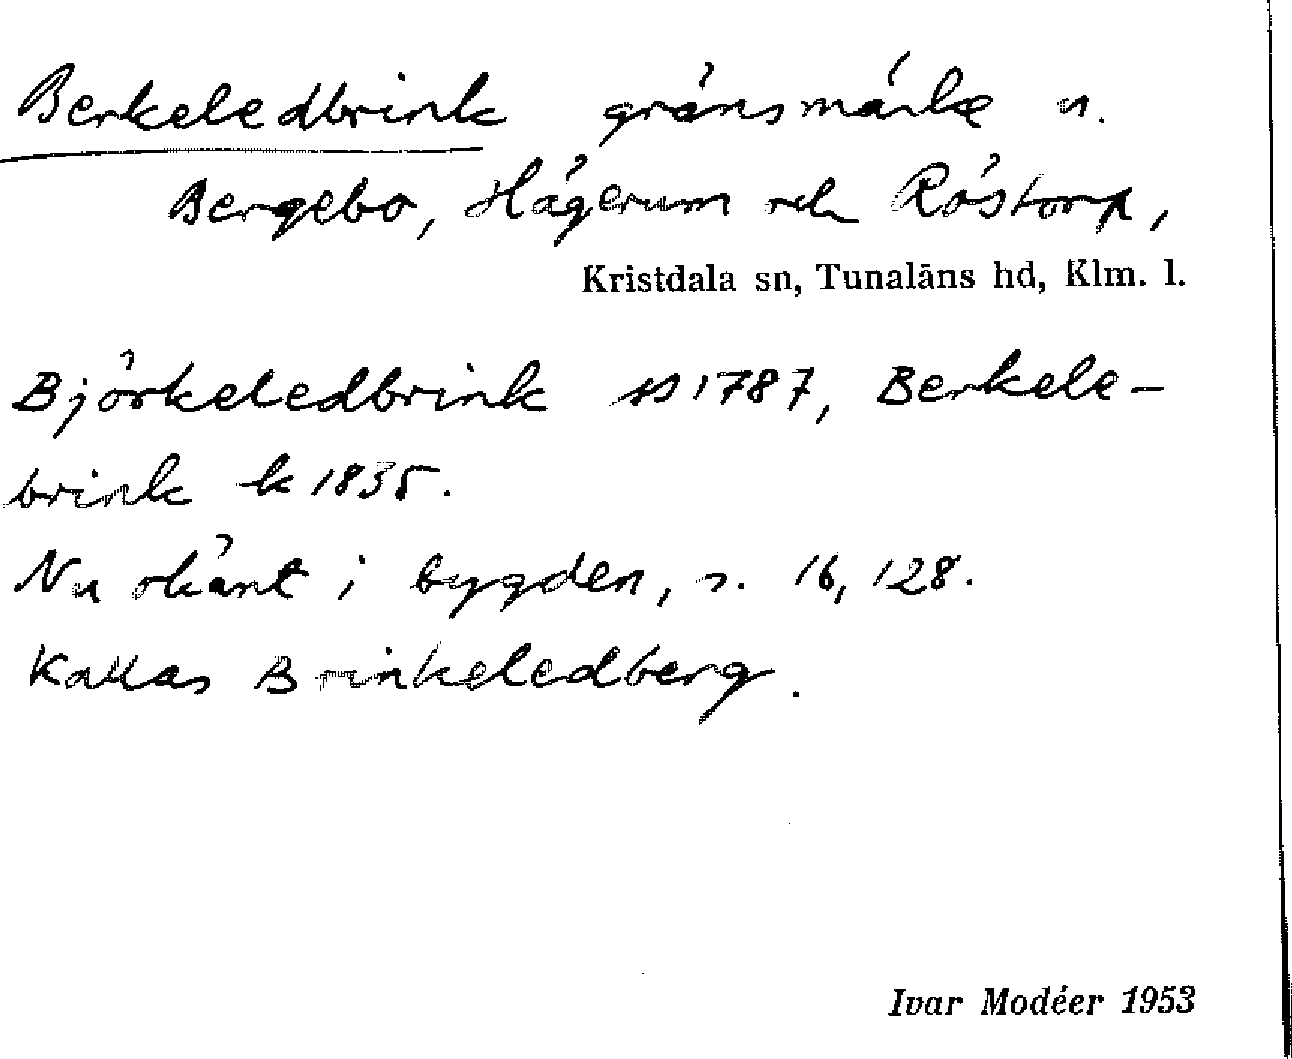 Berkeledbrink gränsmärke n.
Bergebo, Hägerum och Röstorp,
Kristdala sn, Tunaläns hd, Klm. l.
Björkeledbrink 1787, Berkele-
brink k 1835.
Nu okänt i bygden, s. 16, 128.
Kallas Brinkeledberg.
Ivar Modéer 1953